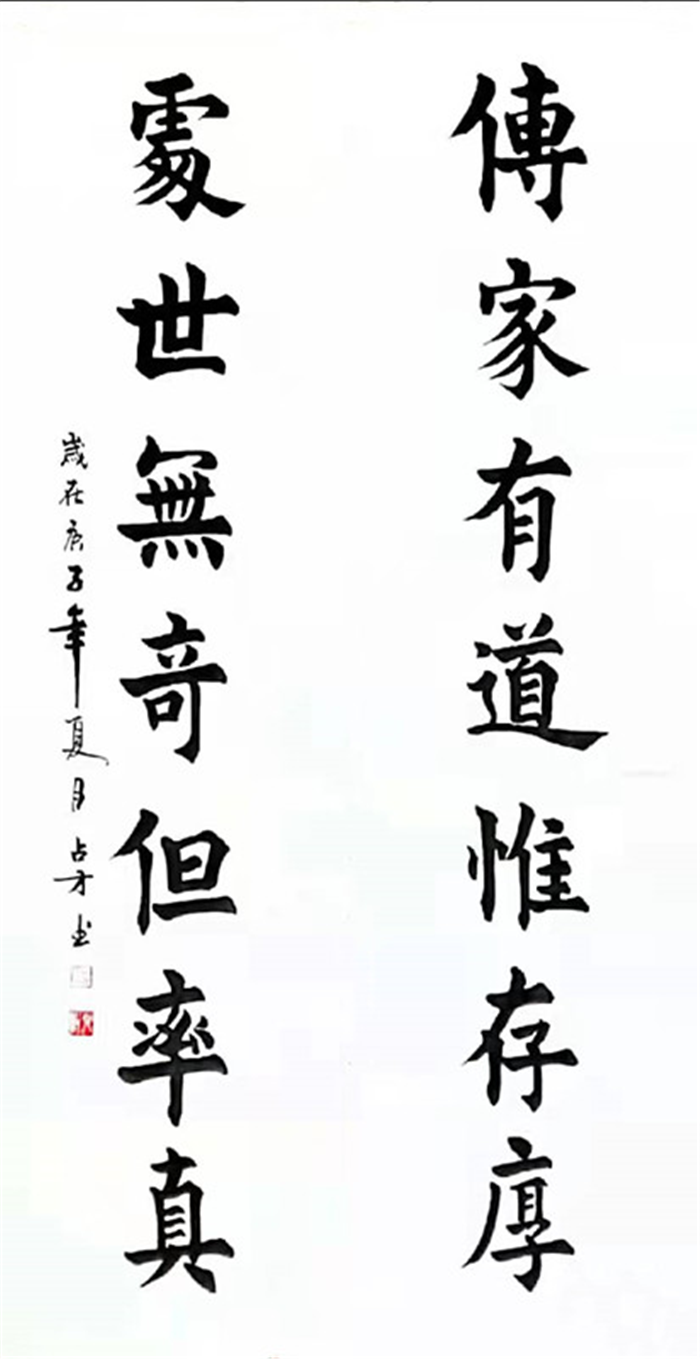 傳家有道惟存厚
處世無奇但率真
歲在庚子年夏月占才书